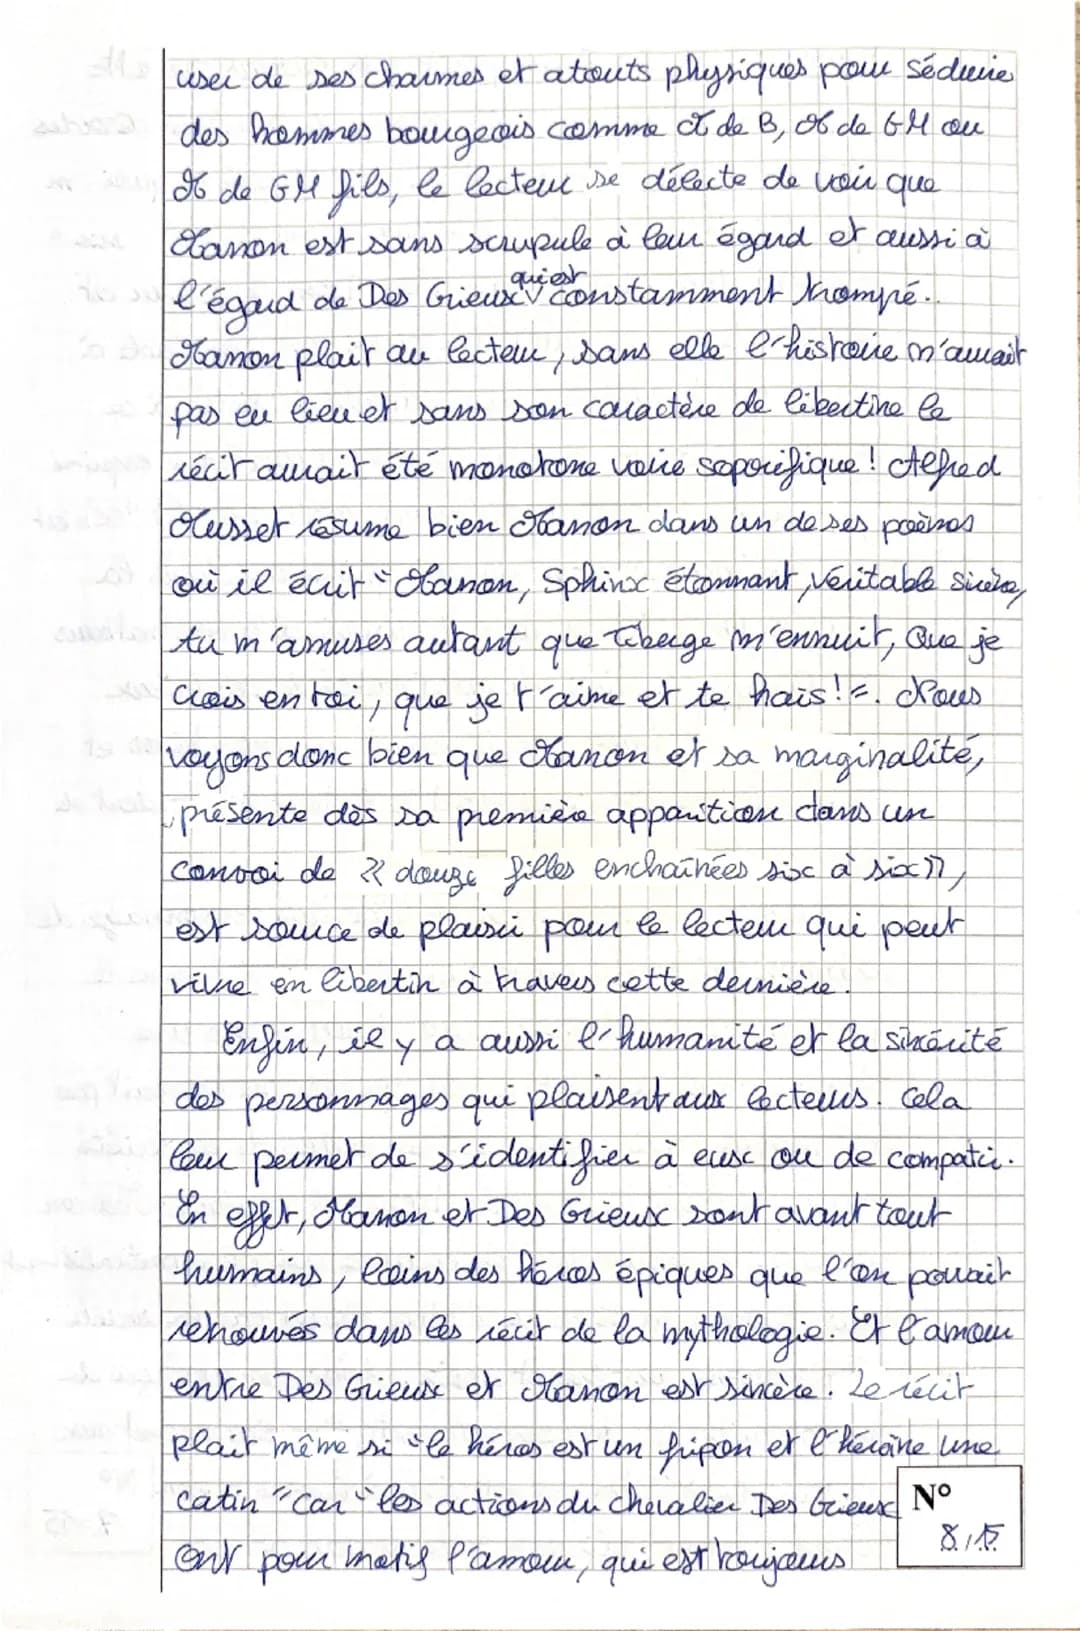 user de ses charmes et atouts physiques pour séduire
des hommes bourgeois comme M de B, M de GM ou
M de GM fils, le lecteur se délecte de voir que
Manon est sans scrupule à leur égard et aussi à
l'égard de Des Grieux qui est constamment trompé.
Manon plait au lecteur, sans elle l'histoire n'aurait
pas eu lieu et sans son caractère de libertine le
récit aurait été monotone voire soporifique ! Alfred
Musset résume bien Manon dans un de ses poèmes
où il écrit "Manon, Sphinx étonnant, véritable sirène,
tu m'amuses autant que Tiberge m'ennuit, Que je
crois en toi, que je t'aime et te hais !". Nous
voyons donc bien que Manon et sa marginalité,
présente dès sa première apparition dans un
convoi de « douze filles enchaînées six à six »,
est source de plaisir pour le lecteur qui peut
vivre en libertin à travers cette dernière.
Enfin, il y a aussi l'humanité et la sincérité
des personnages qui plaisent aux lecteurs. Cela
leur permet de s'identifier à eux ou de compatir.
En effet, Manon et Des Grieux sont avant tout
humains, loins des héros épiques que l'on pouvait
retrouvés dans les récit de la mythologie. Et l'amour
entre Des Grieux et Manon est sincère. Le récit
plait même si "le héros est un fripon et l'héroïne une
catin" car "les actions du chevalier Des Grieux
ont pour motif l'amour, qui est toujours
N°
8/15